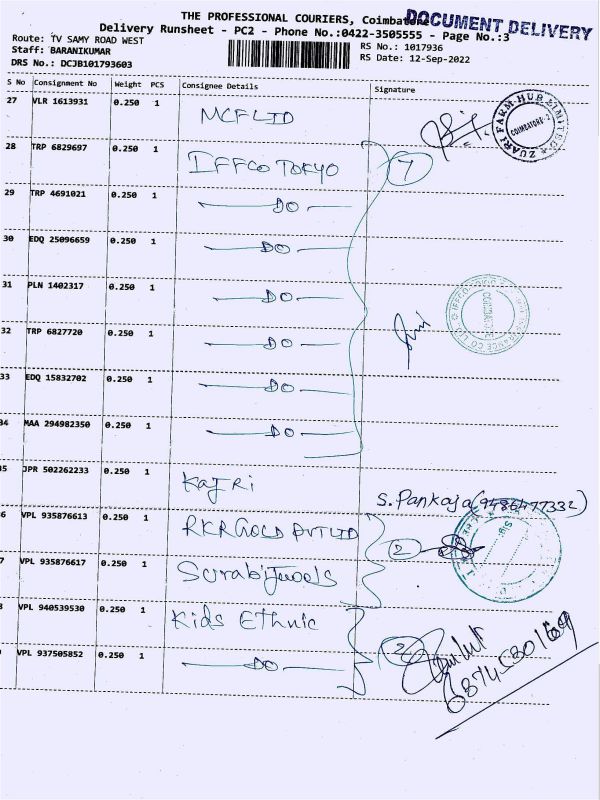 THE PROFESSIONAL COURIERS, Coimbatore
DOCUMENT DELIVERY
Delivery Runsheet - PC2 - Phone No.:0422-3505555 - Page No.:3
Route: TV SAMY ROAD WEST
RS No.: 1017936
Staff: BARANIKUMAR
RS Date: 12-Sep-2022
DRS No.: DCJB101793603
S No Consignment No Weight PCS Consignee Details Signature
27 VLR 1613931 0.250 1 MCFLTD
ZUARI FARM HUB LIMITED
COIMBATORE-2
28 TRP 6829697 0.250 1 IFFCO TOKYO 7
29 TRP 4691021 0.250 1 DO
30 EDQ 25096659 0.250 1 DO
31 PLN 1402317 0.250 1 DO
32 TRP 6827720 0.250 1 DO
33 EDQ 15832702 0.250 1 DO
34 MAA 294982350 0.250 1 DO
35 JPR 502262233 0.250 1 Kajri S. Pankaja (9486477332)
6 VPL 935876613 0.250 1 RKR GOLD PVT LTD 2
7 VPL 935876617 0.250 1 Sorabi Jewels
8 VPL 940539530 0.250 1 Kids Ethnic 2
VPL 937505852 0.250 1 DO